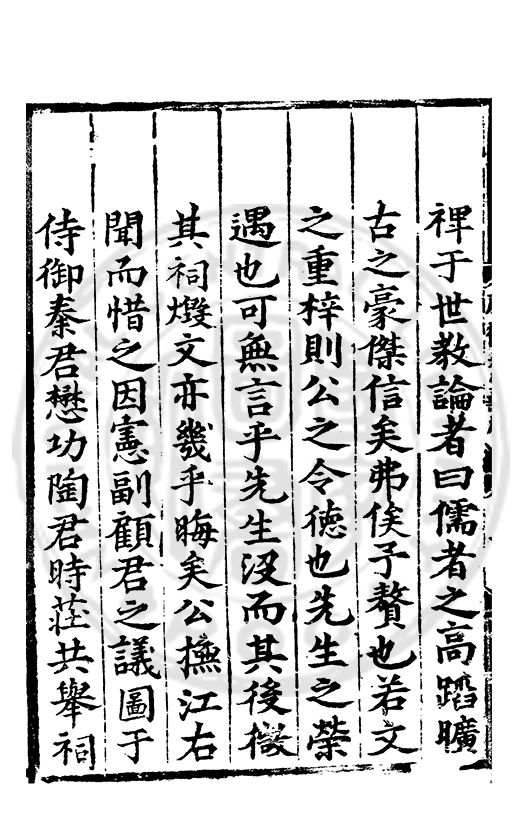 裨于世教論者曰儒者之高蹈曠
古之豪傑信矣弗俟予贅也若文
之重梓則公之令德也先生之榮
遇也可無言乎先生沒而其後微
其祠燬文亦幾乎晦矣公撫江右
聞而惜之因憲副顧君之議圖于
侍御秦君懋功陶君時莊共舉祠